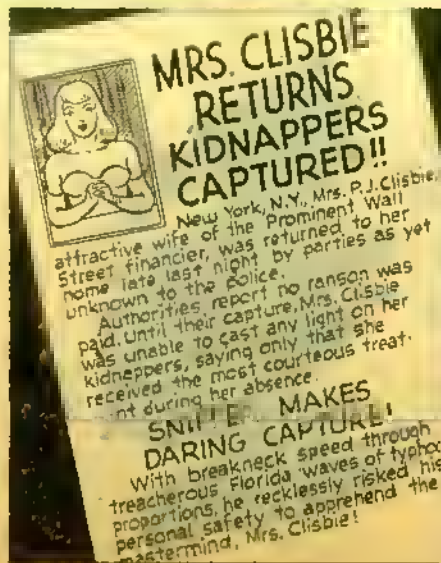 MRS. CLISBIE
RETURNS
KIDNAPPERS
CAPTURED!!
New York, N.Y., Mrs. P.J. Clisbie,
attractive wife of the Prominent Wall
Street financier, was returned to her
home late last night by parties as yet
unknown to the police.
Authorities report no ranson was
paid. Until their capture, Mrs. Clisbie
was unable to cast any light on her
kidneppers, saying only that she
received the most courteous treat-
nt during her absence.
MAKES
DARING CAPTURE!
With breakneck speed through
treacherous Florida waves of typhoo
proportions, he recklessly risked his
personal safety to apprehend the
mastermind, Mrs. Clisbie!